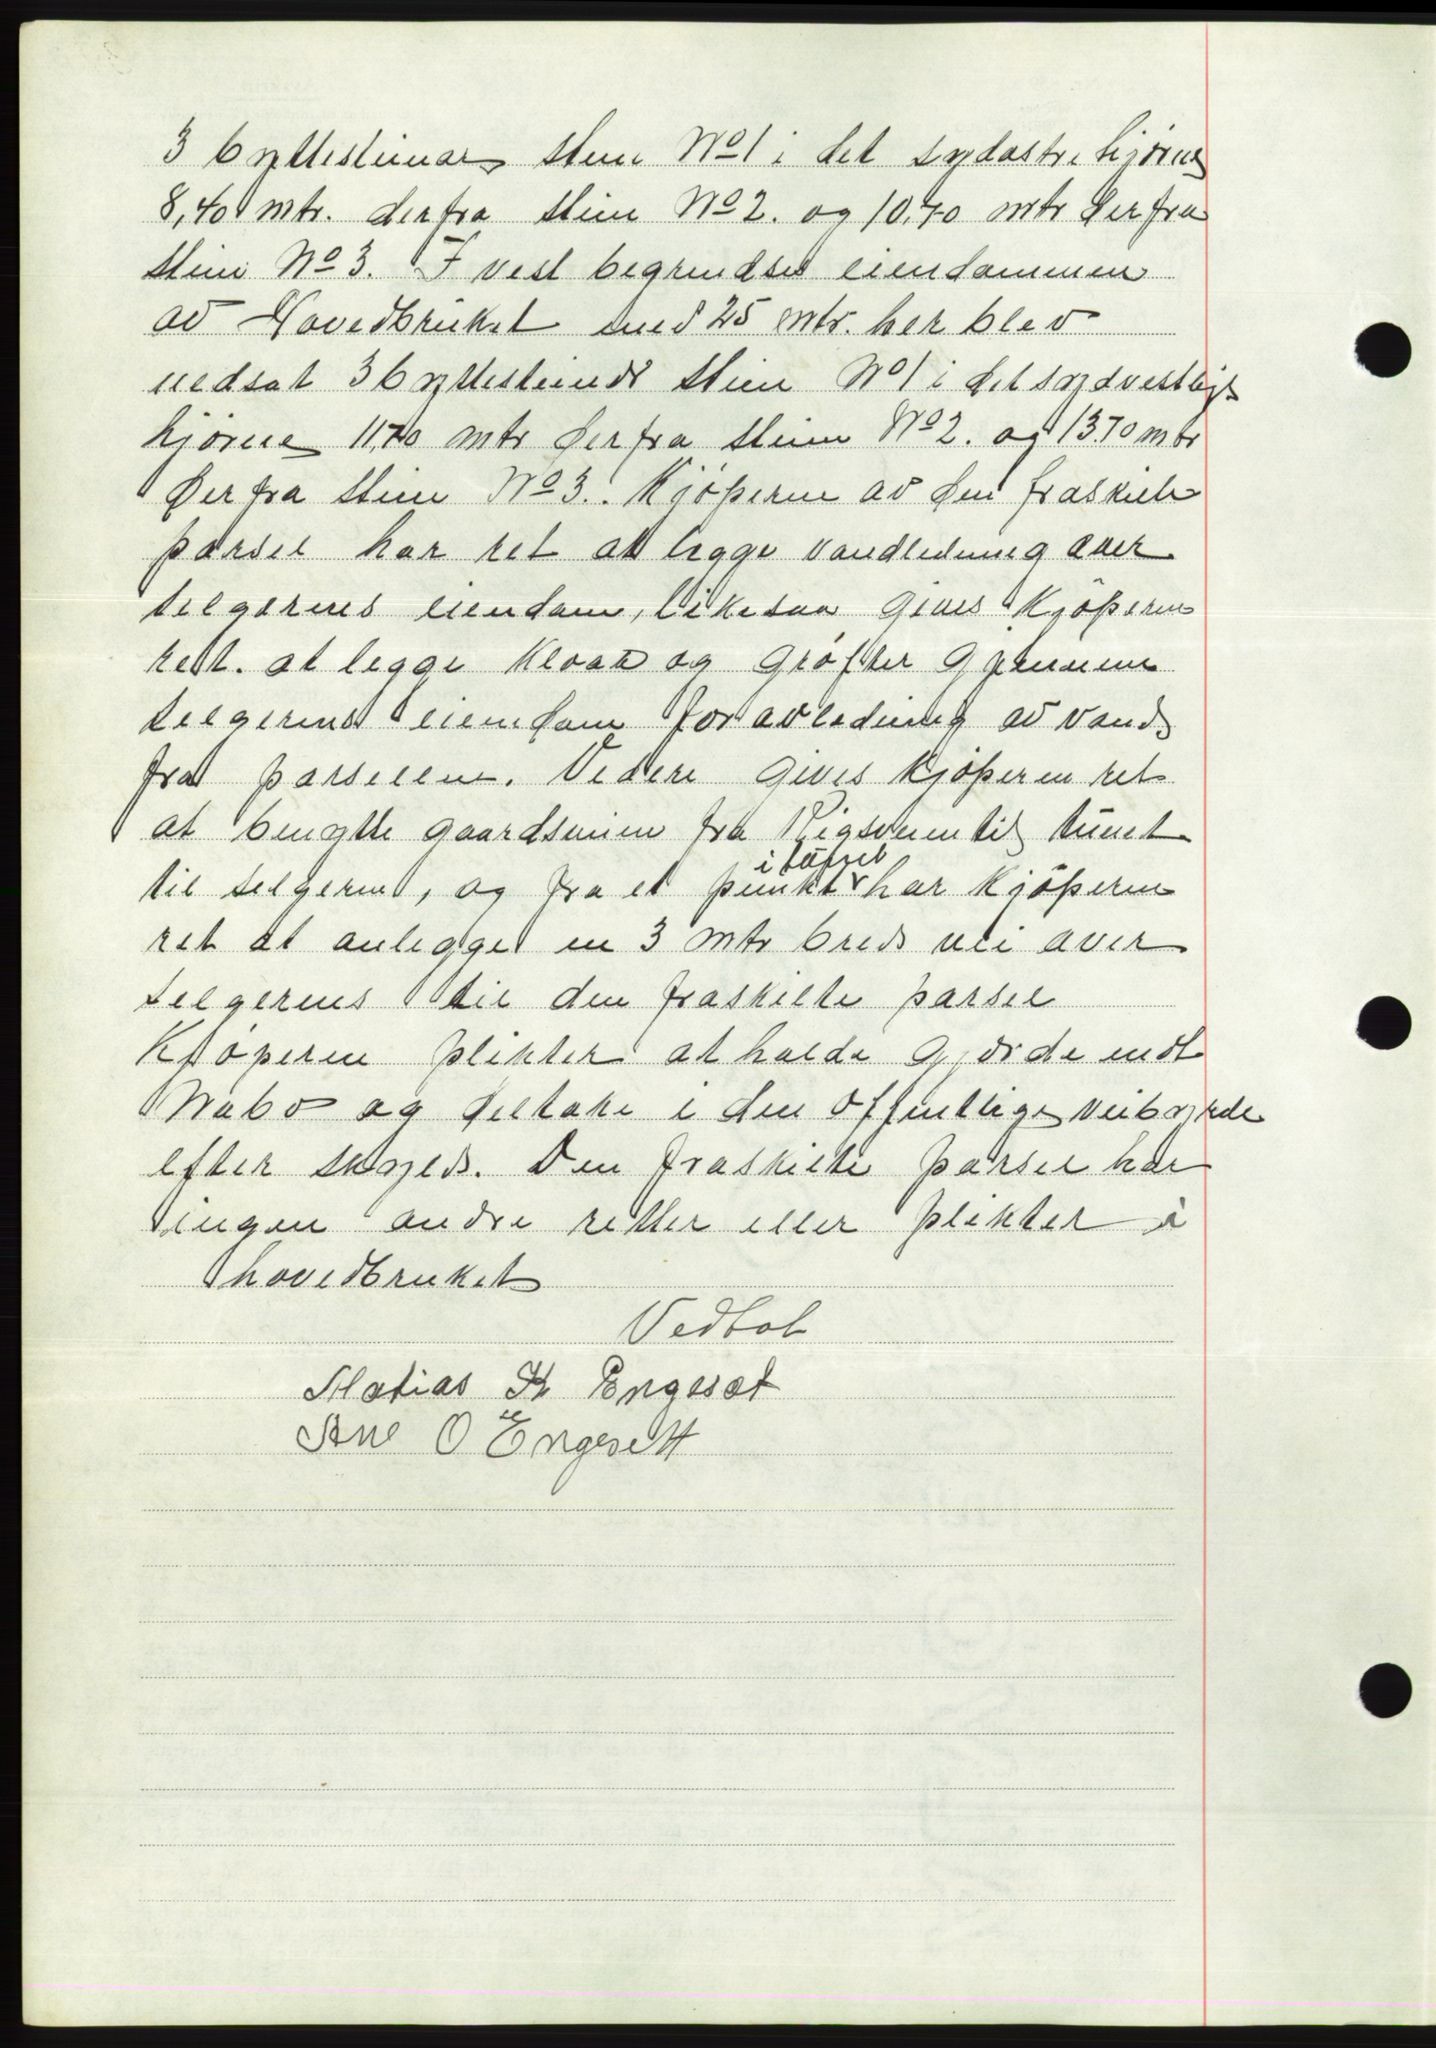 3 byttesteinar stein No 1 i det sydøstre hjørne
8,40 mtr. derfra stein No 2. og 10,70 mtr derfra
stein No 3. I vest begrendses eiendommen
av Hovedbruket med 25 mtr. her blev
nedsat 3 byttesteiner stein No 1 i det sydvestlige
hjørne 11,70 mtr derfra steinn No 2. og 13.70 mtr
derfra stein No 3. Kjøperen av den fraskilte
parsel har ret at legge vandledning over
selgerens eiendom, likesaa gives Kjøperen
ret. at legge kloak og grøfter gjennem
selgerens eiendom for avledning av vand
fra parsellen. Videre gives kjøperen ret
at benytte gaardsveien fra Rigsveien til tunet
til selgeren, og fra et punkt i tunet har Kjøperen
ret at anlegge en 3 mtr bred vei over
selgerens til den fraskilte parsel
Kjøperen plikter at holde gjærde mot
Nabo og deltake i den offentlige veibyrde
efter skyld. Den fraskilte parsel har
ingen andre retter eller plikter i
hovedbruket
Vedtat
Matias K Engeset
Ane O Engesett